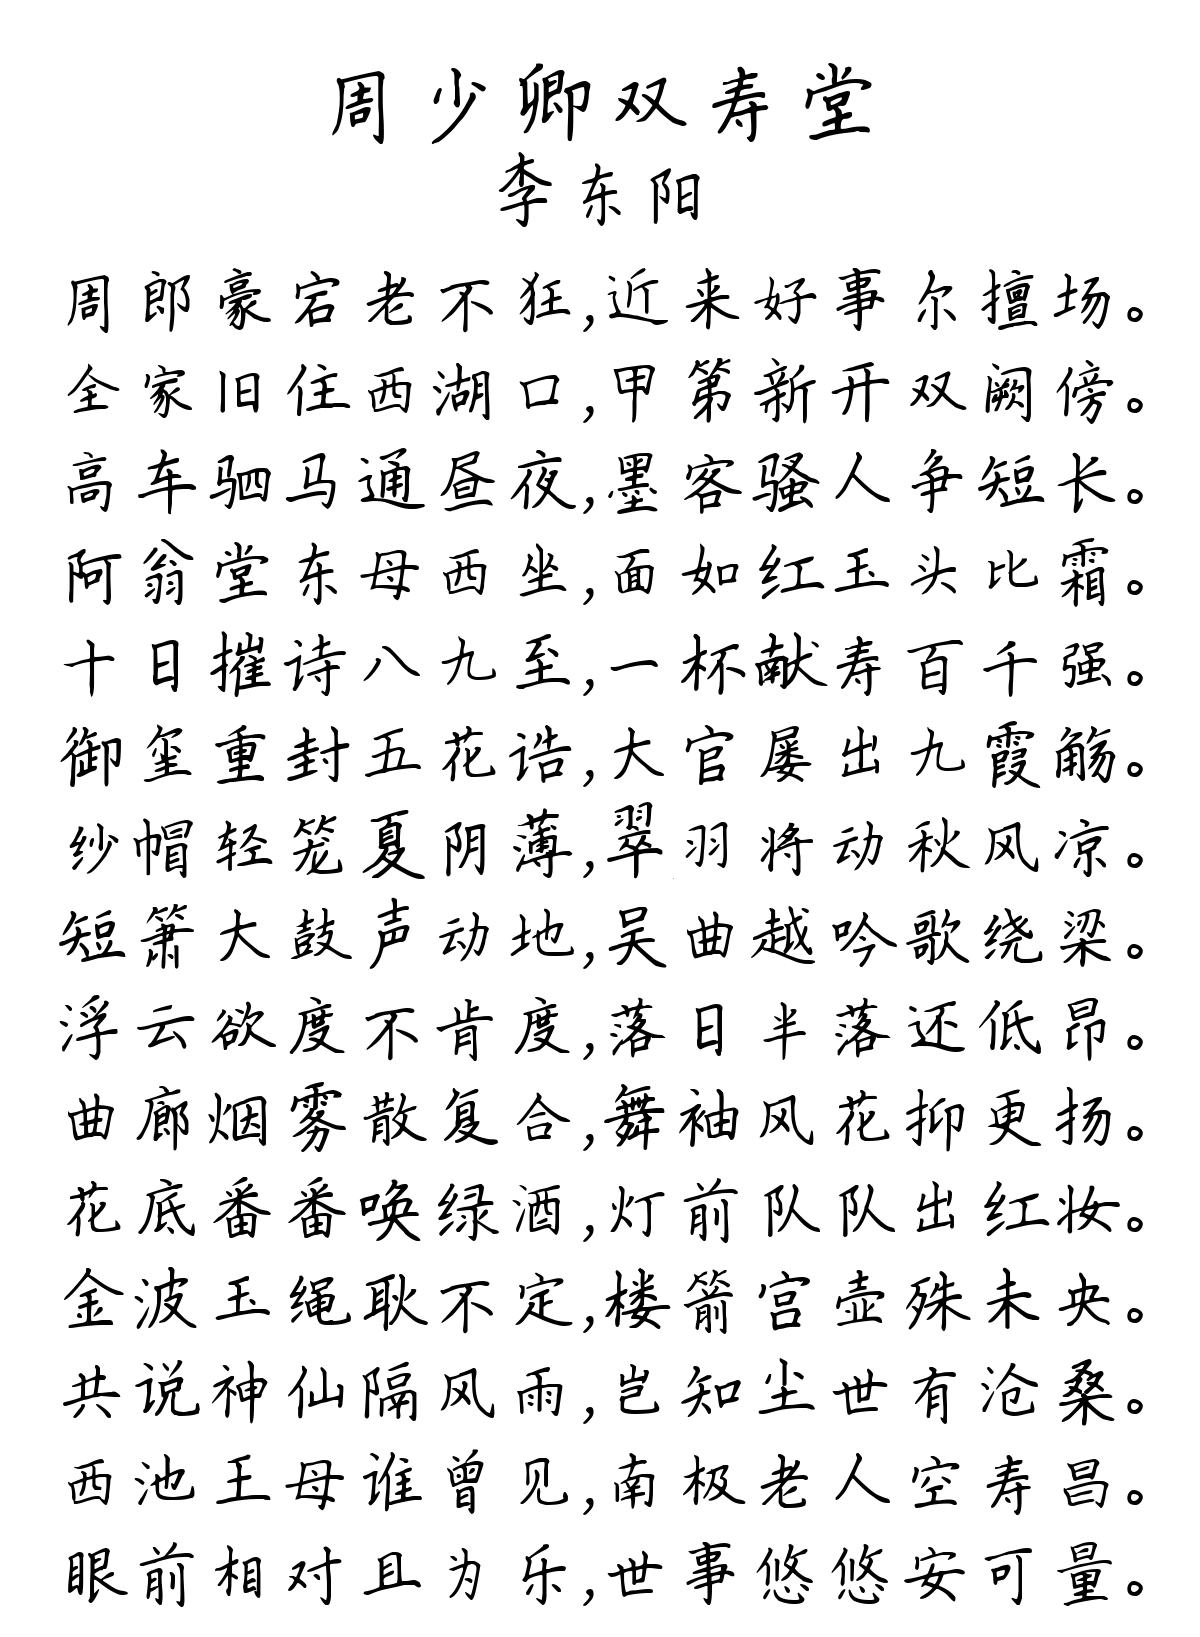 周少卿双寿堂
李东阳
周郎豪宕老不狂,近来好事尔擅场。
全家旧住西湖口,甲第新开双阙傍。
高车驷马通昼夜,墨客骚人争短长。
阿翁堂东母西坐,面如红玉头比霜。
十日摧诗八九至,一杯献寿百千强。
御玺重封五花诰,大官屡出九霞觞。
纱帽轻笼夏阴薄,翠羽将动秋风凉。
短箫大鼓声动地,吴曲越吟歌绕梁。
浮云欲度不肯度,落日半落还低昂。
曲廊烟雾散复合,舞袖风花抑更扬。
花底番番唤绿酒,灯前队队出红妆。
金波玉绳耿不定,楼箭宫壶殊未央。
共说神仙隔风雨,岂知尘世有沧桑。
西池王母谁曾见,南极老人空寿昌。
眼前相对且为乐,世事悠悠安可量。